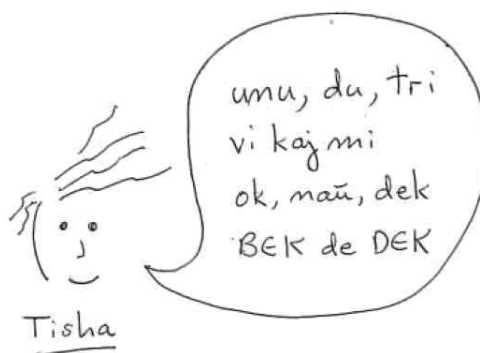 unu, du, tri
vi kaj mi
ok, naŭ, dek
BEK de DEK
Tisha